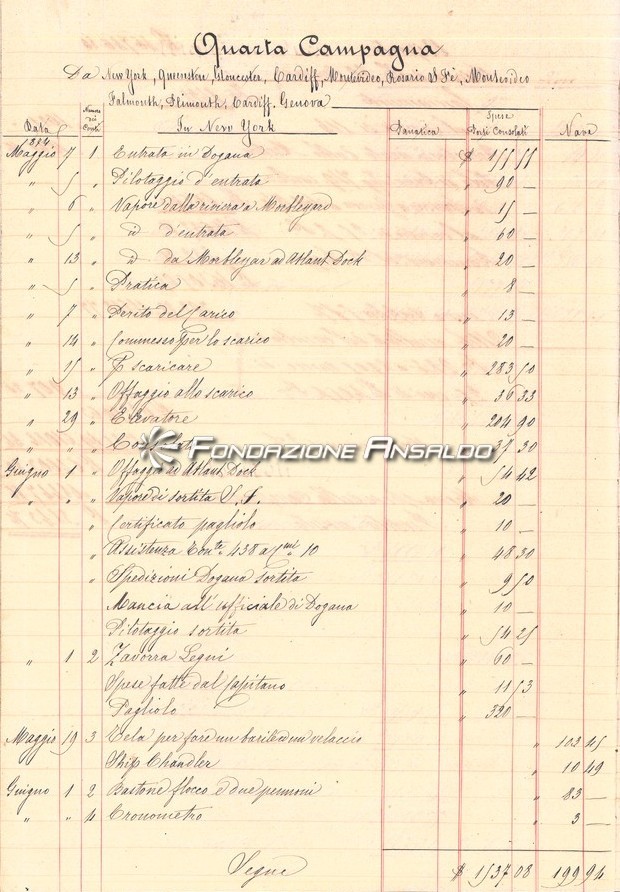 Quarta Campagna
Da New York, Queenston, Gloucester, Cardiff, Montevideo, Rosario S Fè, Montevideo
Falmouth, Plimouth, Cardiff, Genova
Data Numero dei Conti In New York Panatica Spese Porti Consolati Nave
874
Maggio 7 1 Entrata in Dogana $ 155 55
" 5 " Pilotaggio d'entrata " 90 —
" 6 " Vapore dalla riviera a " 15 —
" 5 " id d'entrata " 60 —
" 13 " id da ad Atlant Dock " 20 —
" 5 " Pratica " 8 —
" 7 " Perito del Carico " 13 —
" 14 " Commesso per lo scarico " 20 —
" 15 " P scaricare " 283 50
" 13 " Offaggio allo scarico " 36 33
" 29 " Elevatore " 204 90
" " 37 30
Fondazione Ansaldo
Giugno 1 " Offaggio ad Atlant Dock " 54 42
" " " Vapore di sortita S. F. " 20 —
" Certificato pagliolo " 10 —
" Assistenza Tonte 438 a Cmi 10 " 48 30
" Spedizioni Dogana sortita " 9 50
Mancia all'ufficiale di Dogana " 10 —
Pilotaggio sortita " 54 25
" 1 2 Zavorra Legni " 60 —
Spese fatte dal Capitano " 11 53
Pagliolo " 320 —
Maggio 19 3 Tela per fare un e un velaccio " 103 45
Ship Chandler " 10 49
Giugno 1 2 Bastone flocco e due pennoni " 83 —
" " 4 Cronometro " 3 —
Segue $ 1537 08 199 94